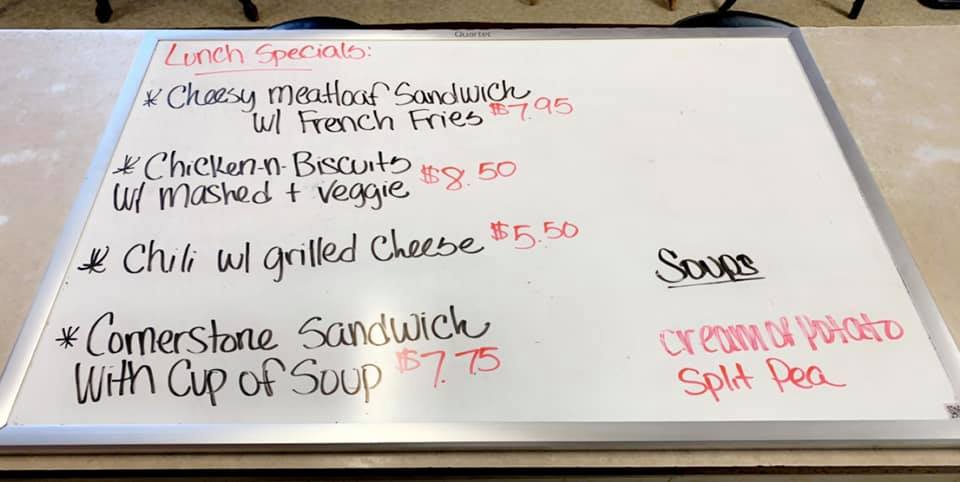 Quartet
Lunch Specials:
* Cheesy Meatloaf Sandwich
w/ French Fries $7.95
* Chicken-n-Biscuits
w/ mashed + veggie $8.50
* Chili w/ grilled Cheese $5.50
* Cornerstone Sandwich
With Cup of Soup $7.75
Soups
Cream of Potato
Split Pea